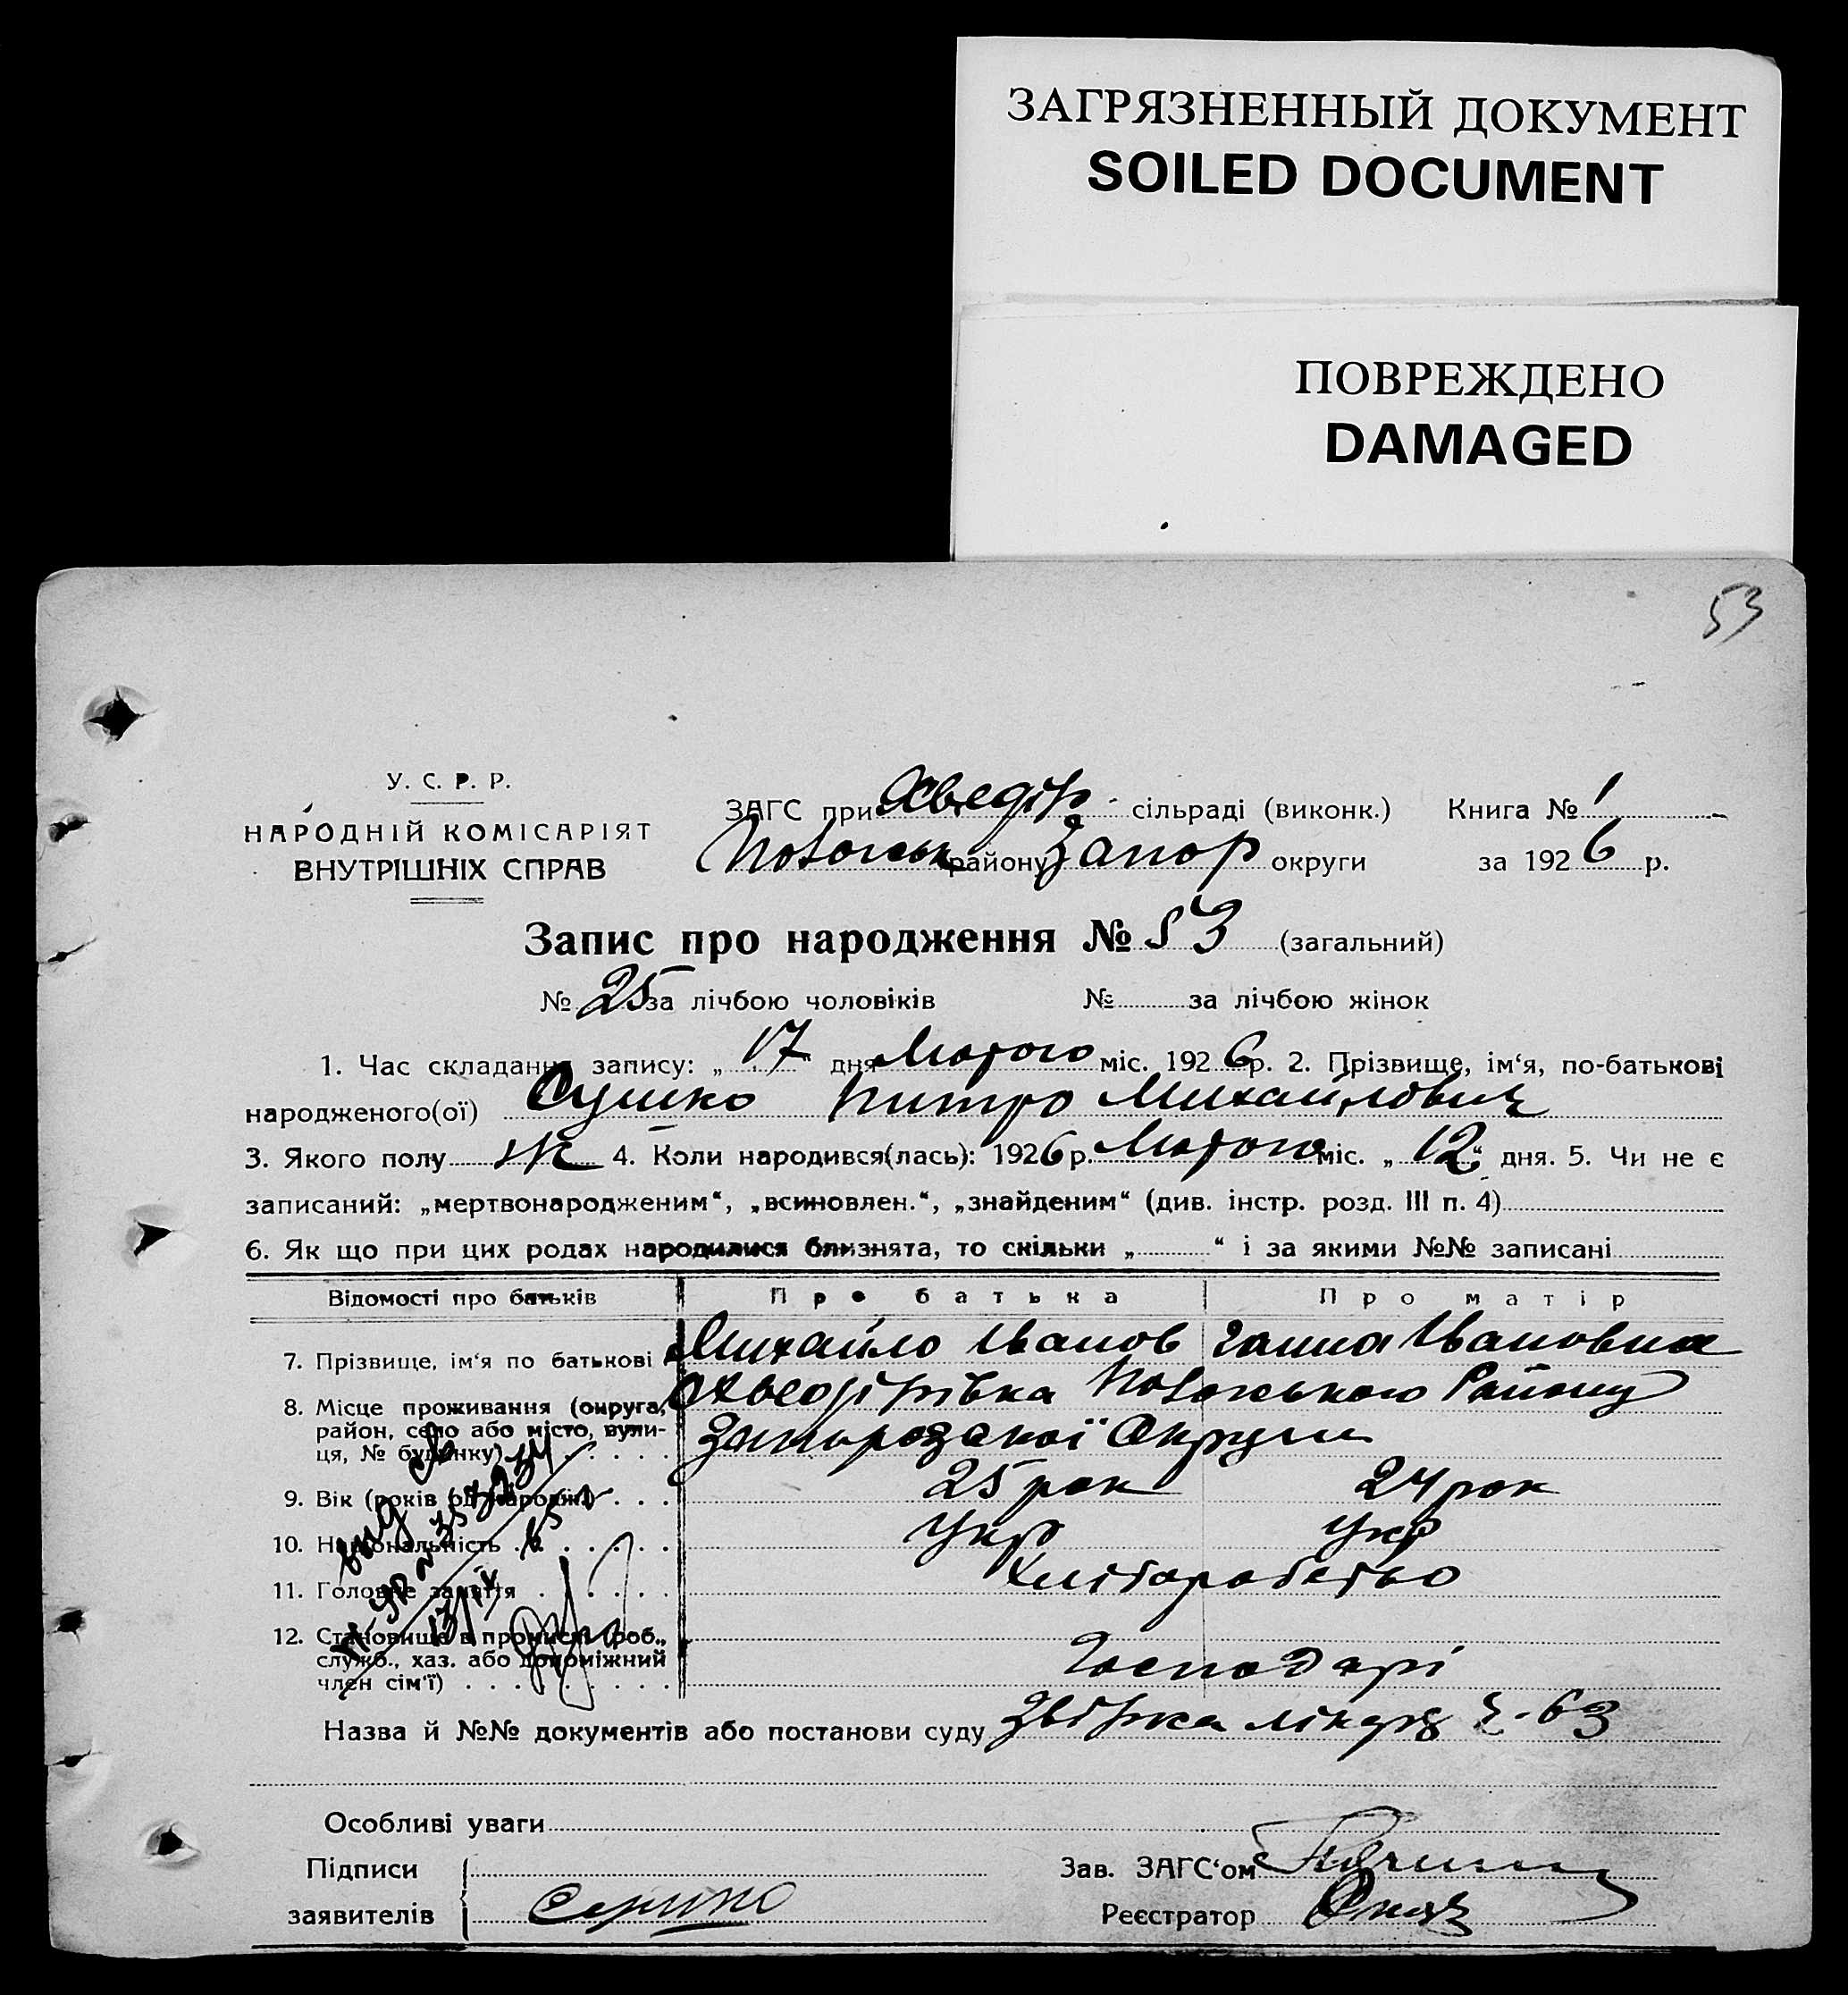 ЗАГРЯЗНЕННЫЙ ДОКУМЕНТ
SOILED DOCUMENT
ПОВРЕЖДЕНО
DAMAGED
53
У. С. Р. Р.
НАРОДНІЙ КОМІСАРІЯТ
ВНУТРІШНІХ СПРАВ
ЗАГС при Хведір сільраді (виконк.) Книга № 1
району Запор округи за 1926 р.
Запис про народження № 53 (загальний)
№ 25 за лічбою чоловіків № за лічбою жінок
1. Час складання запису: „ 17 " дня Лютого міс. 1926 р. 2. Прізвище, ім'я, по-батькові
народженого(ої) Сушко Питро Михайлович
3. Якого полу 4. Коли народився(лась): 1926 р. Лютого міс. „ 12 " дня. 5. Чи не є
записаний: „мертвонародженим", „всиновлен.", „знайденим" (див. інстр. розд. III п. 4)
6. Як що при цих родах народилися близнята, то скільки „ " і за якими №№ записані
Відомості про батьків Про батька Про матір
7. Прізвище, ім'я по батькові Михайло Іванов Ганна Івановна
8. Місце проживання (округа, район, село або місто, вулиця, № будинку) Хведірівка Району
Округи
9. Вік (років од народж.) 25 рок 24 рок
10. Національність Укр Укр
11. Головне заняття Хліборобство
12. Становище в промислі (роб., служб., хаз. або допоміжний член сім'ї) Господарі
Назва й №№ документів або постанови суду Збірка 63
Особливі уваги
Підписи Зав. ЗАГС'ом
заявителів Сушко Реєстратор